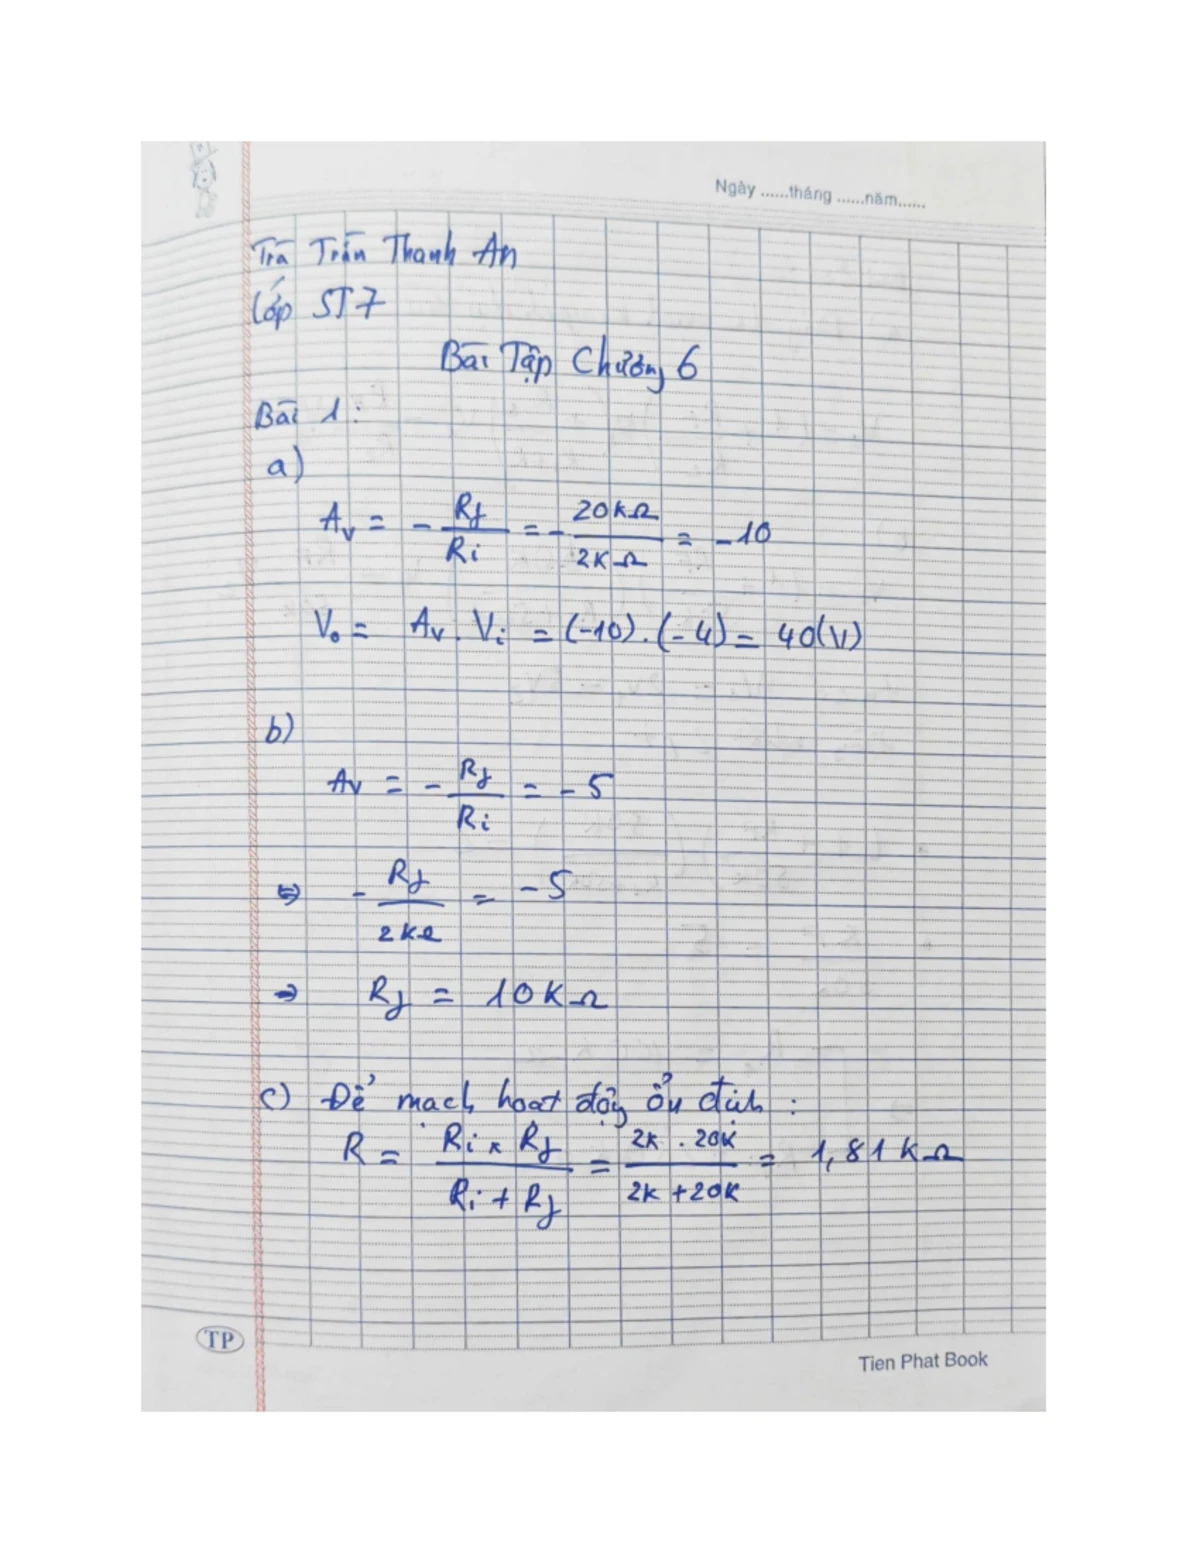 Ngày ......tháng ......năm......
Trà Trần Thanh An
Lớp ST7
Bài Tập Chương 6
Bài 1:
a)
Av = - Rf / Ri = - 20KΩ / 2KΩ = -10
Vo = Av . Vi = (-10).(-4) = 40(V)
b)
Av = - Rf / Ri = - 5
⇔ - Rf / 2KΩ = - 5
→ Rf = 10KΩ
c) Để mạch hoạt động ổn định :
R = Ri x Rf / Ri + Rf = 2K . 20K / 2K + 20K = 1,81 KΩ
TP
Tien Phat Book